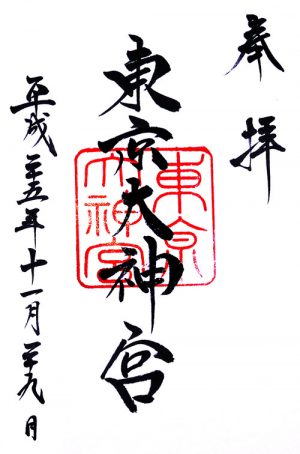 奉拝
東京大神宮
東京大神宮
平成二十五年十一月二十九日